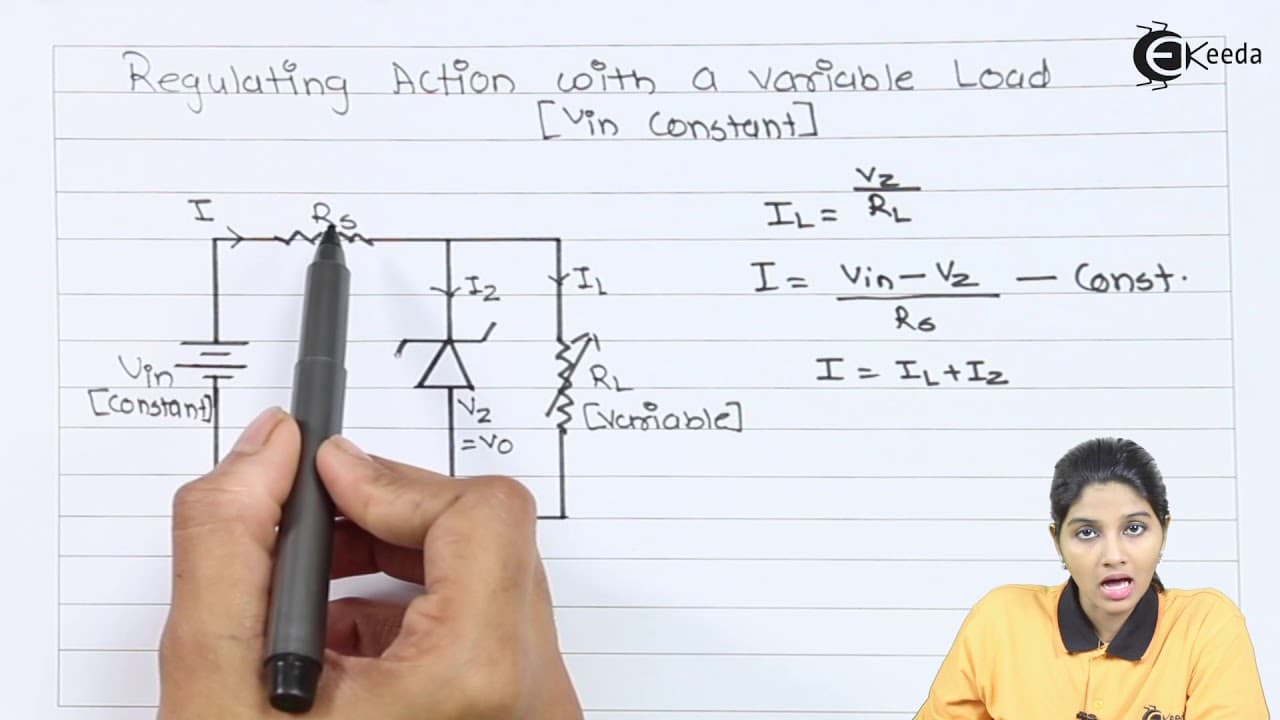 Regulating Action with a variable Load
[Vin Constant]
EKeeda
I
Rs
IZ
IL
Vin
[Constant]
VZ
=VO
RL
[Variable]
IL = VZ / RL
I = Vin - VZ / Rs - Const.
I = IL + IZ